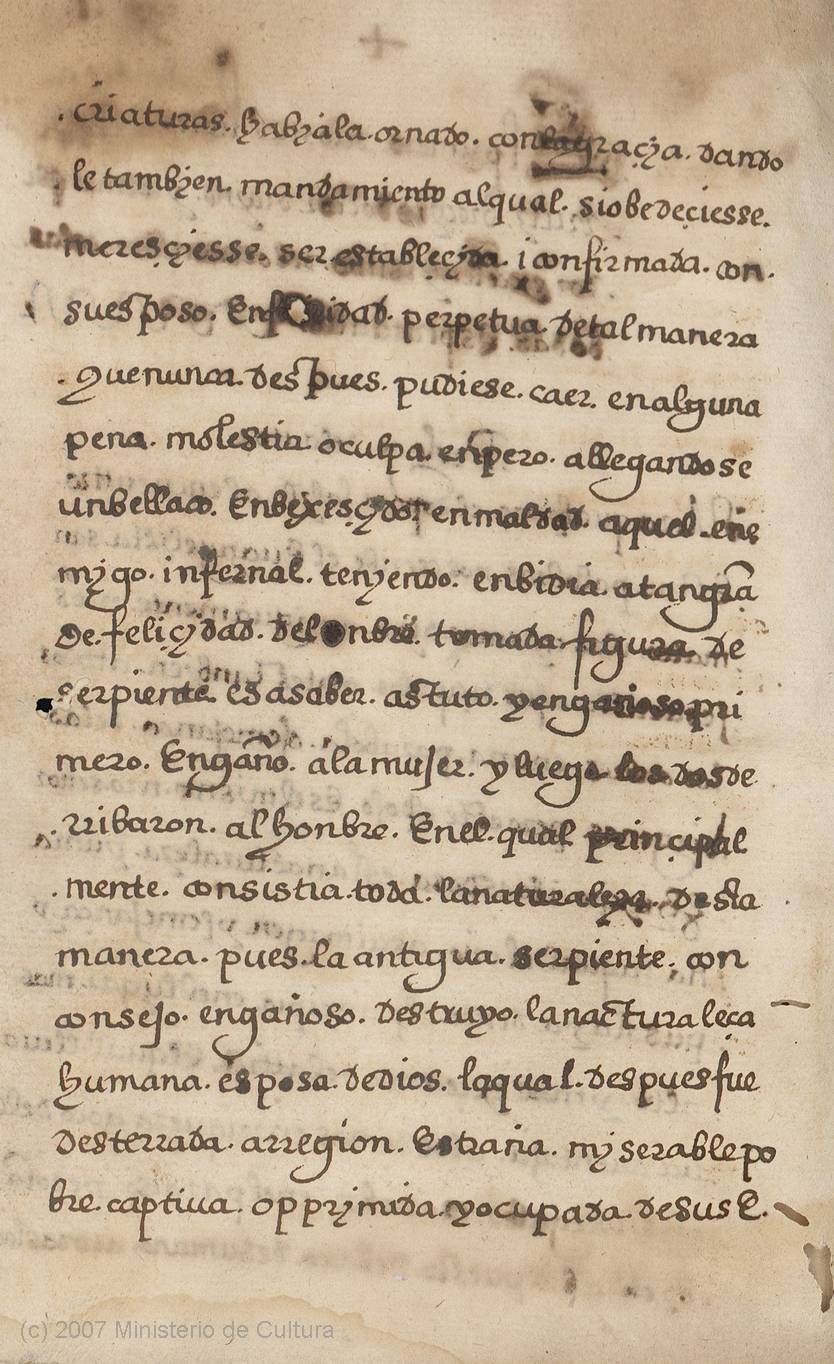 +
.criaturas. habyala. ornado. con la graçya. dando
le tambyen. mandamiento alqual. siobedeçiesse.
meresçiesse. ser. estableçyda. i confirmada. con.
suesposo. En idad. perpetua. detal manera
.Que nunca. despues. pudiese. caer. en alguna
pena. molestia o culpa. enpero. allegandose
un bellaco. Enbexesçydo. en maldad. aquel. ene
mygo. infernal. tenyendo. enbidia. a tan grã
De. feliçydad. del onbre. tomada figura de
serpiente es asaber. astuto. y engañoso pri
mero. Engaño. a la mujer. y luego los dos de
.rribaron. al honbre. En el. qual prinçipal
.mente. consistia. toda. la naturaleza. desta
manera. pues. la antigua. serpiente. con
consejo. engañoso. destruyo. la nactura leça
humana. esposa. de dios. la qual. despues fue
desterrada. arregion. Estraña. myserable po
bre. captiua. opprymida. y ocupada. de sus E.
(c) 2007 Ministerio de Cultura